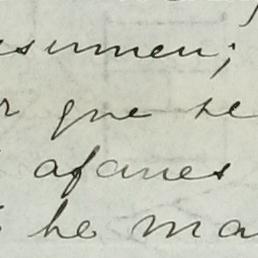 esumen;
r que he
afanes
he ma